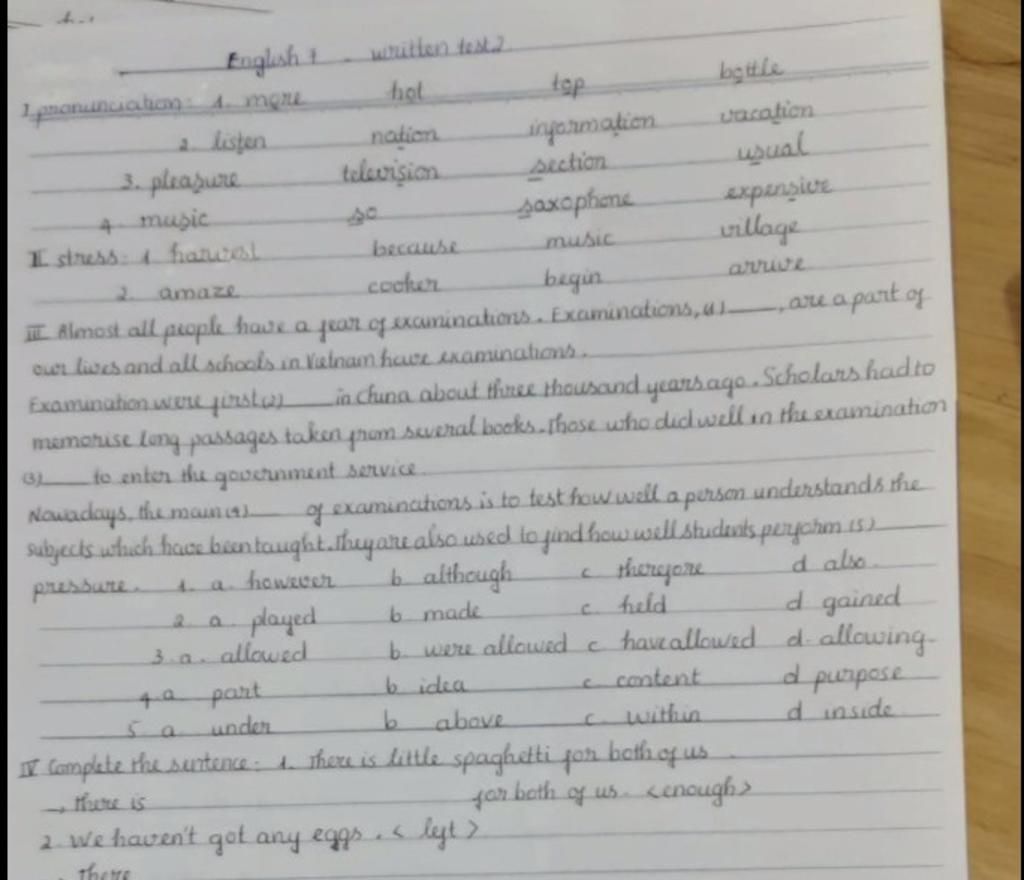 English 7 - written test 2
I pronunciation: 1. more hot top bottle
2. listen nation information vacation
3. pleasure television section usual
4. music so saxophone expensive
II stress: 1. harvest because music village
2. amaze cooker begin arrive
III Almost all people have a fear of examinations. Examinations, (1) ___, are a part of
our lives and all schools in Vietnam have examinations.
Examination were first (2) ___ in China about three thousand years ago. Scholars had to
memorise long passages taken from several books. Those who did well in the examination
(3) ___ to enter the government service.
Nowadays, the main (4) ___ of examinations is to test how well a person understands the
subjects which have been taught. They are also used to find how well students perform (5) ___
pressure. 1. a. however b although c therefore d also.
2. a. played b made c held d gained
3. a. allowed b. were allowed c have allowed d. allowing
4. a part b idea c content d purpose
5. a. under b above c. within d inside
IV Complete the sentence: 1. There is little spaghetti for both of us.
→ There is for both of us. <enough>
2. We haven't got any eggs. <left>
There